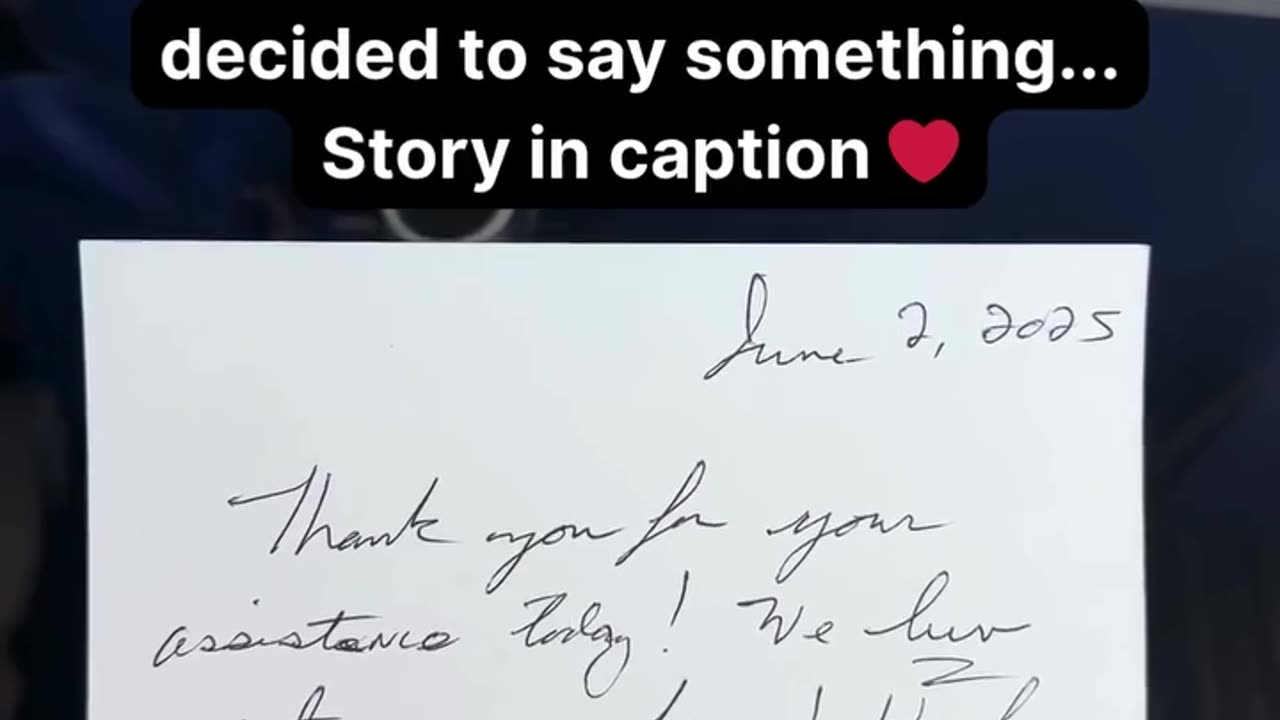 decided to say something...
Story in caption ❤️
June 2, 2025
Thank you for your
assistance today! We luv